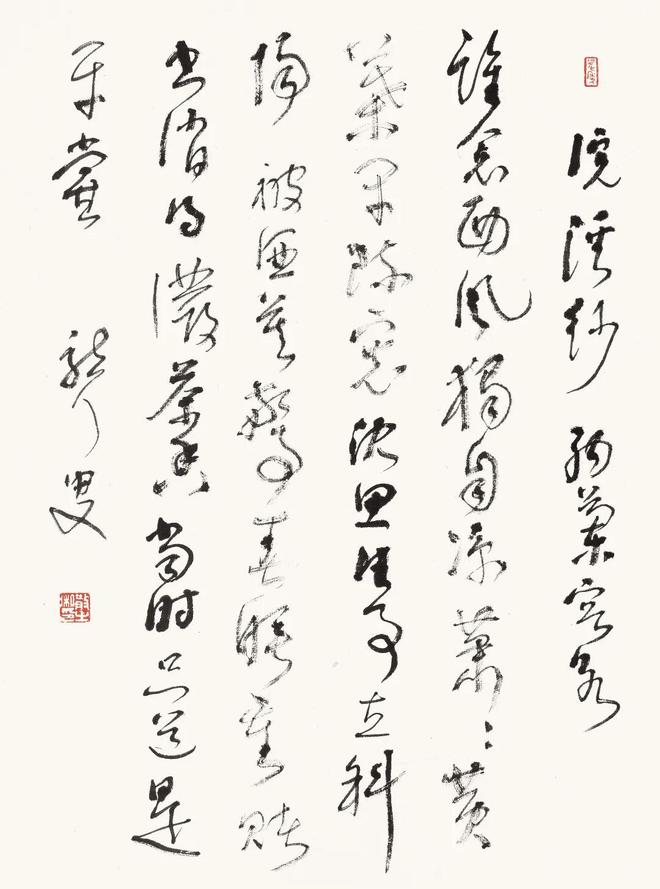 浣溪紗 納蘭容若
誰念西風獨自涼 蕭〻黃
葉閉疏窗 沈思往事立斜
陽 被酒莫驚春睡重 賭
書消得潑茶香 當时只道是
尋常 叟